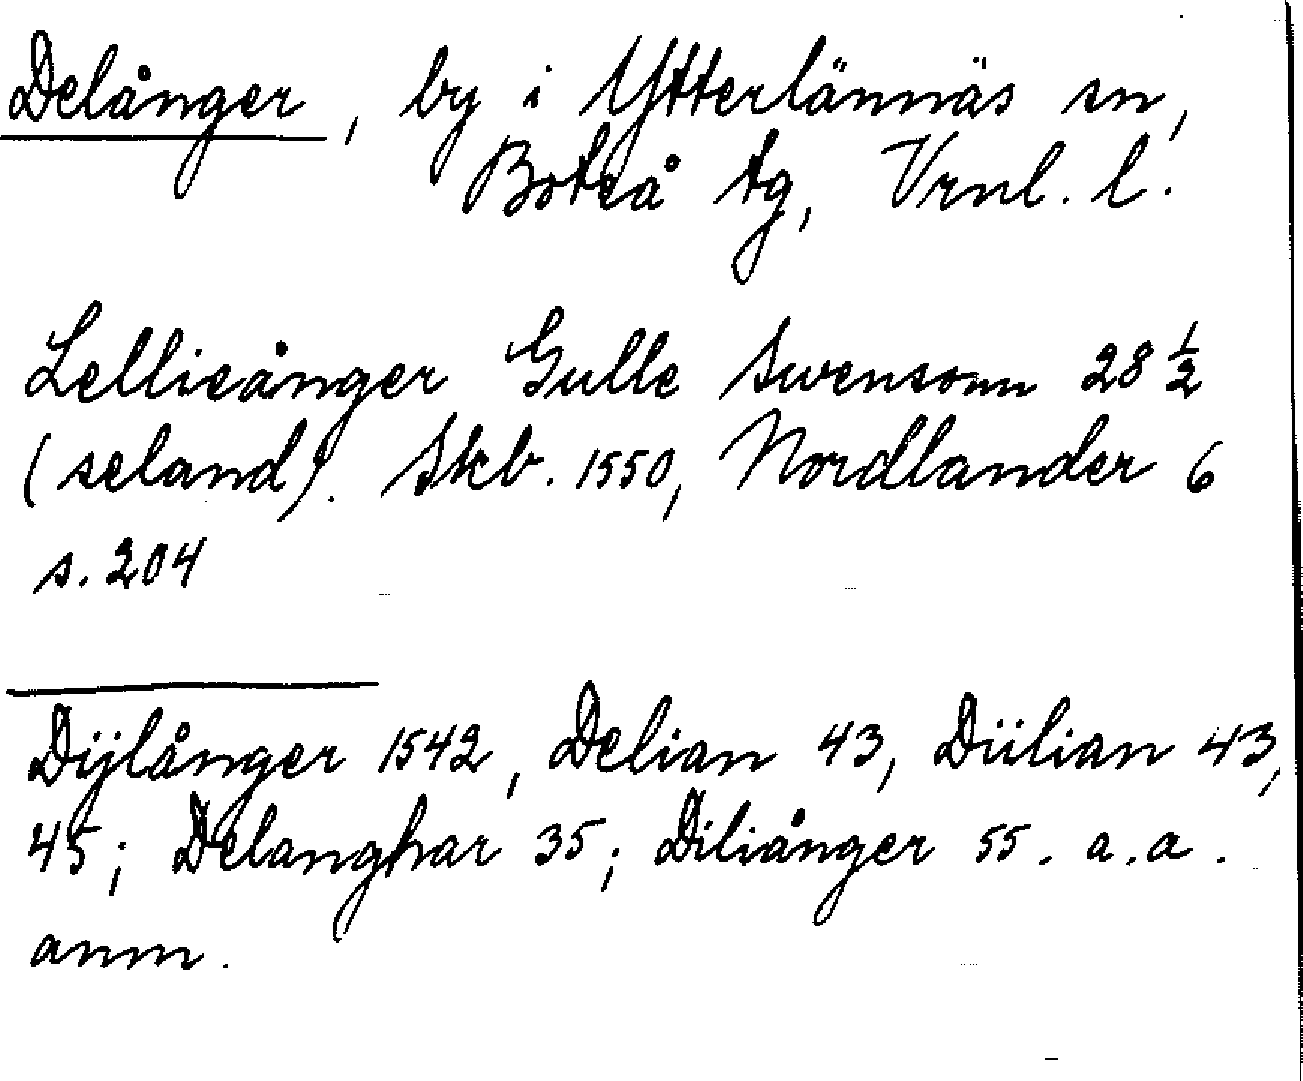 Delånger, by i Ytterlännäs sn,
Boteå tg, Vrnl. l.
Lellieånger Gulle Swensonn 28 ½
(seland). Skb. 1550, Nordlander 6
s. 204
Dijlånger 1542, Delian 43, Diilian 43,
45; Delanghar 35; Diliånger 55. a.a.
anm.